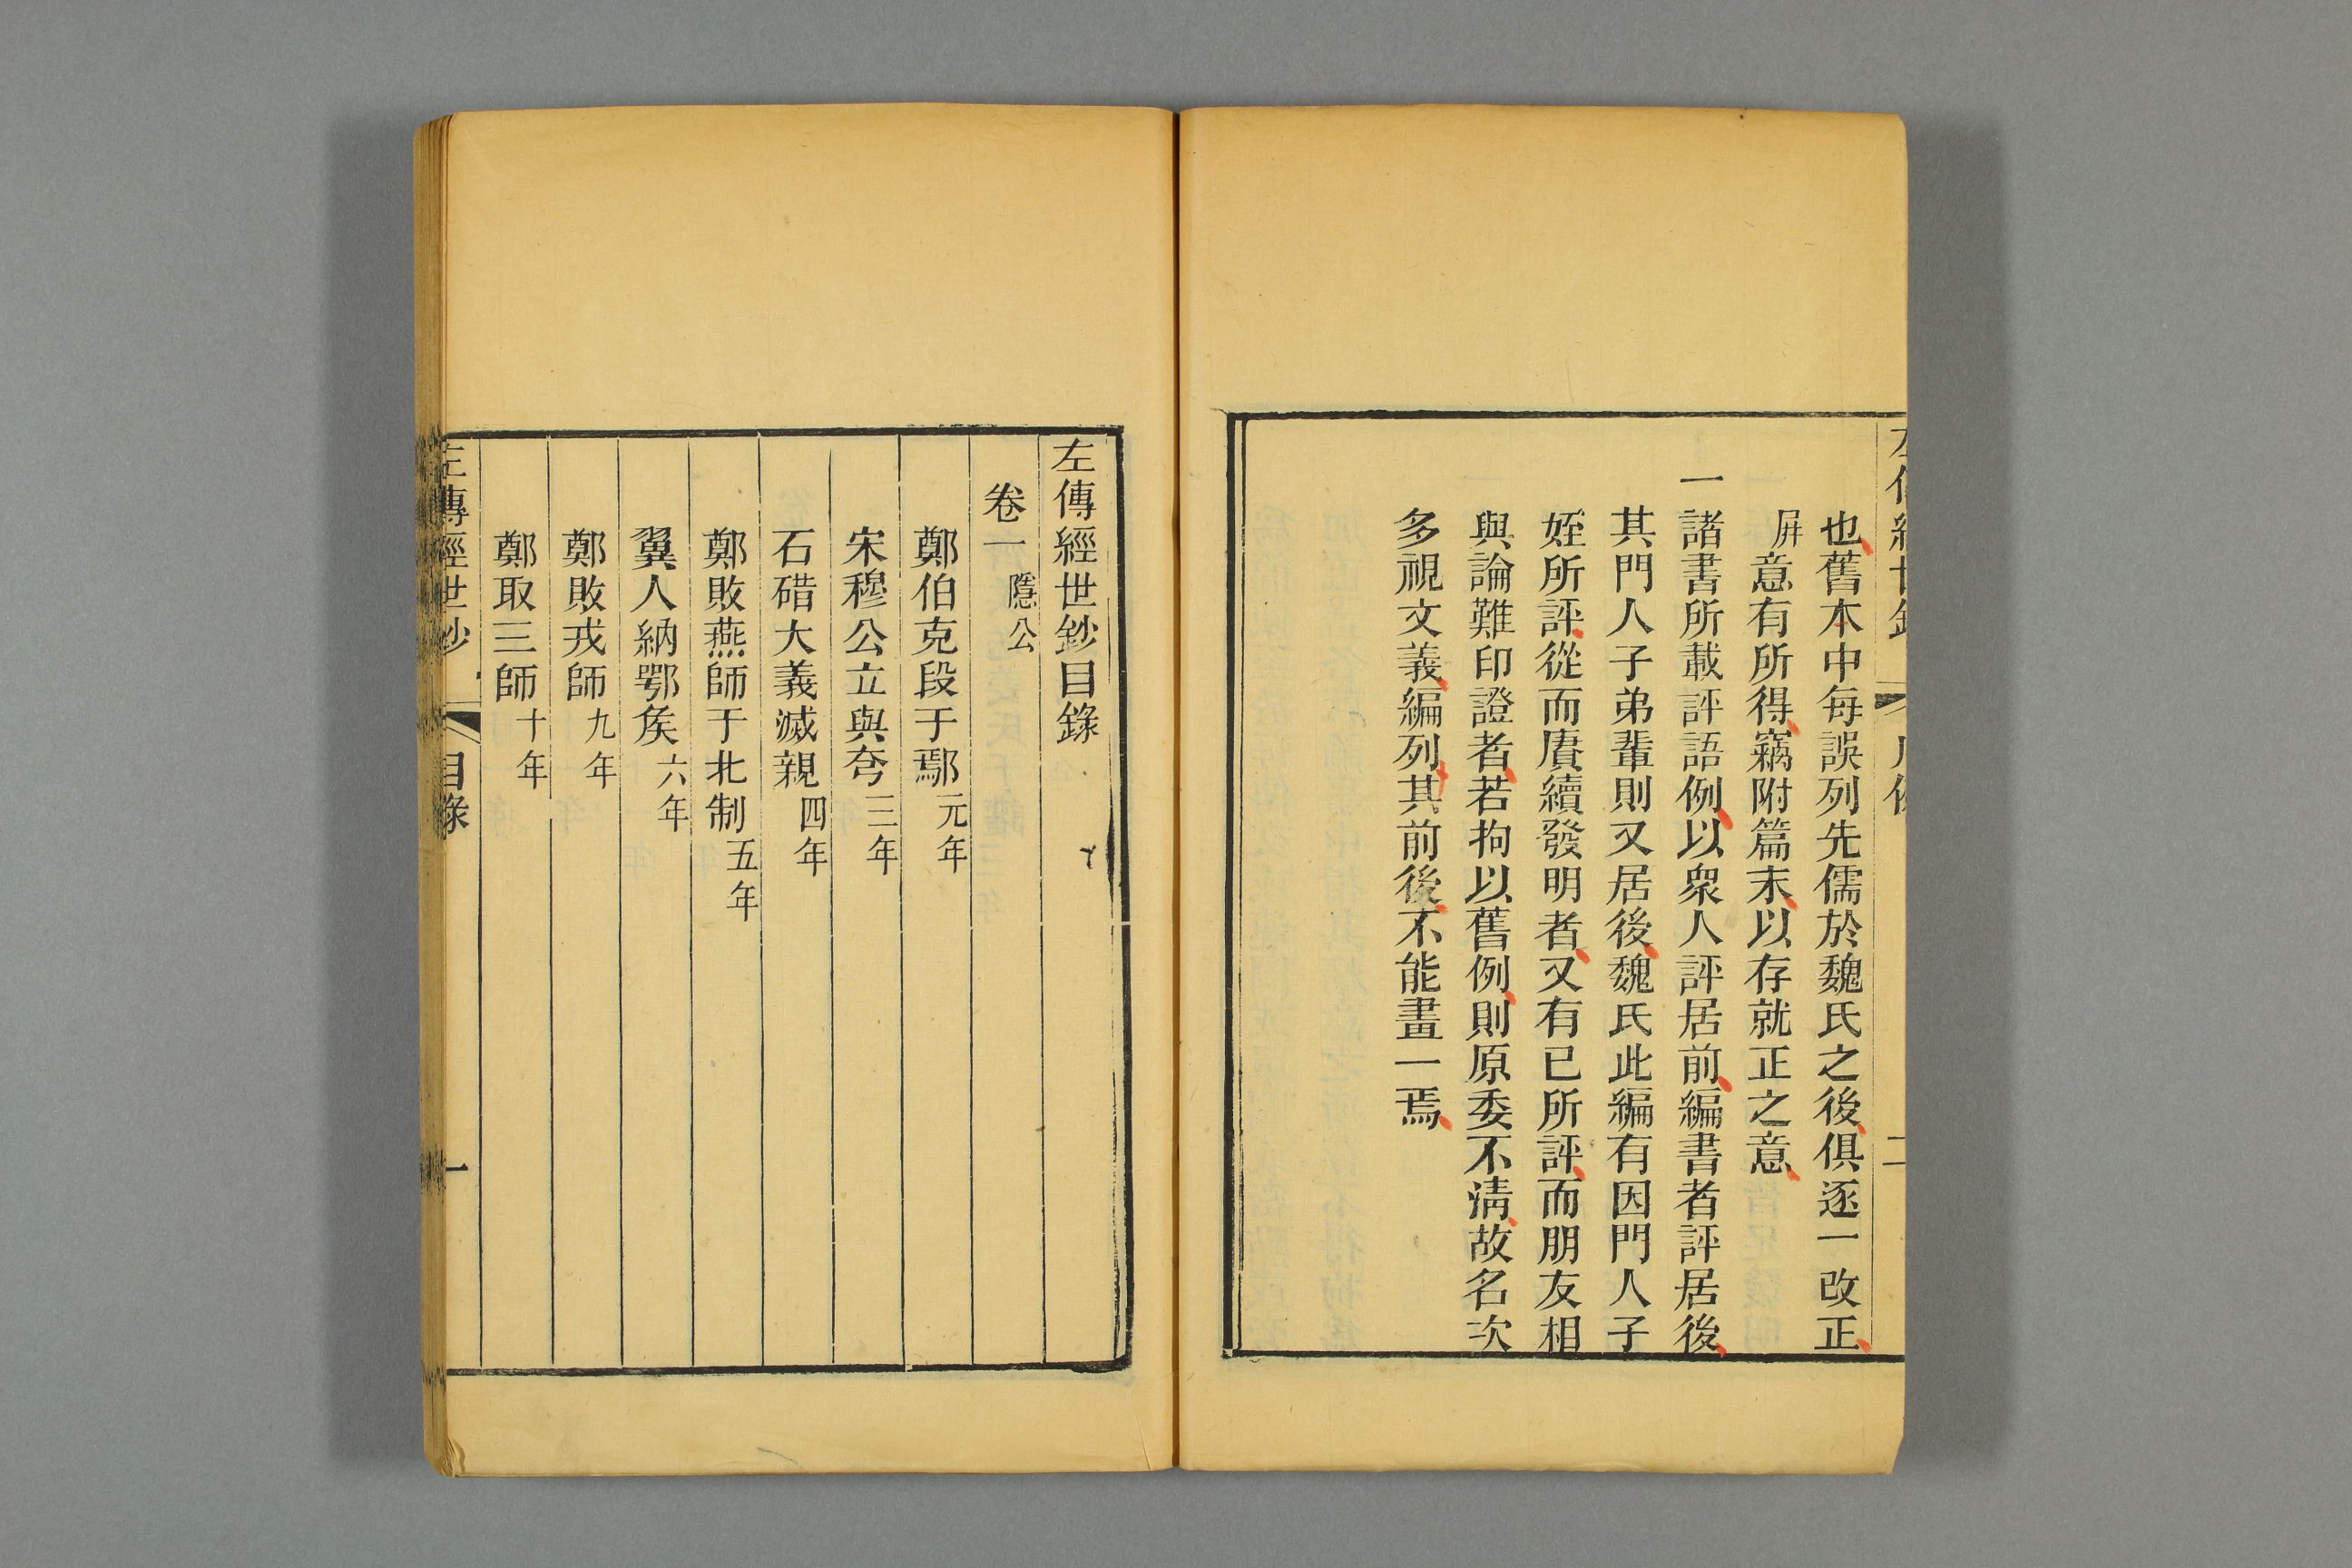 也舊本中每誤列先儒於魏氏之後俱逐一改正
屏意有所得竊附篇末以存就正之意
一諸書所載評語例以衆人評居前編書者評居後
其門人子弟輩則又居後魏氏此編有因門人子
姪所評從而賡續發明者又有已所評而朋友相
與論難印證者若拘以舊例則原委不淸故名次
多視文義編列其前後不能畫一焉
左傳經世鈔目錄
卷一隱公
鄭伯克段于鄢元年
宋穆公立與夸三年
石碏大義滅親四年
鄭敗燕師于北制五年
翼人納鄂矦六年
鄭敗戎師九年
鄭取三師十年
左傳經世鈔 目錄 一